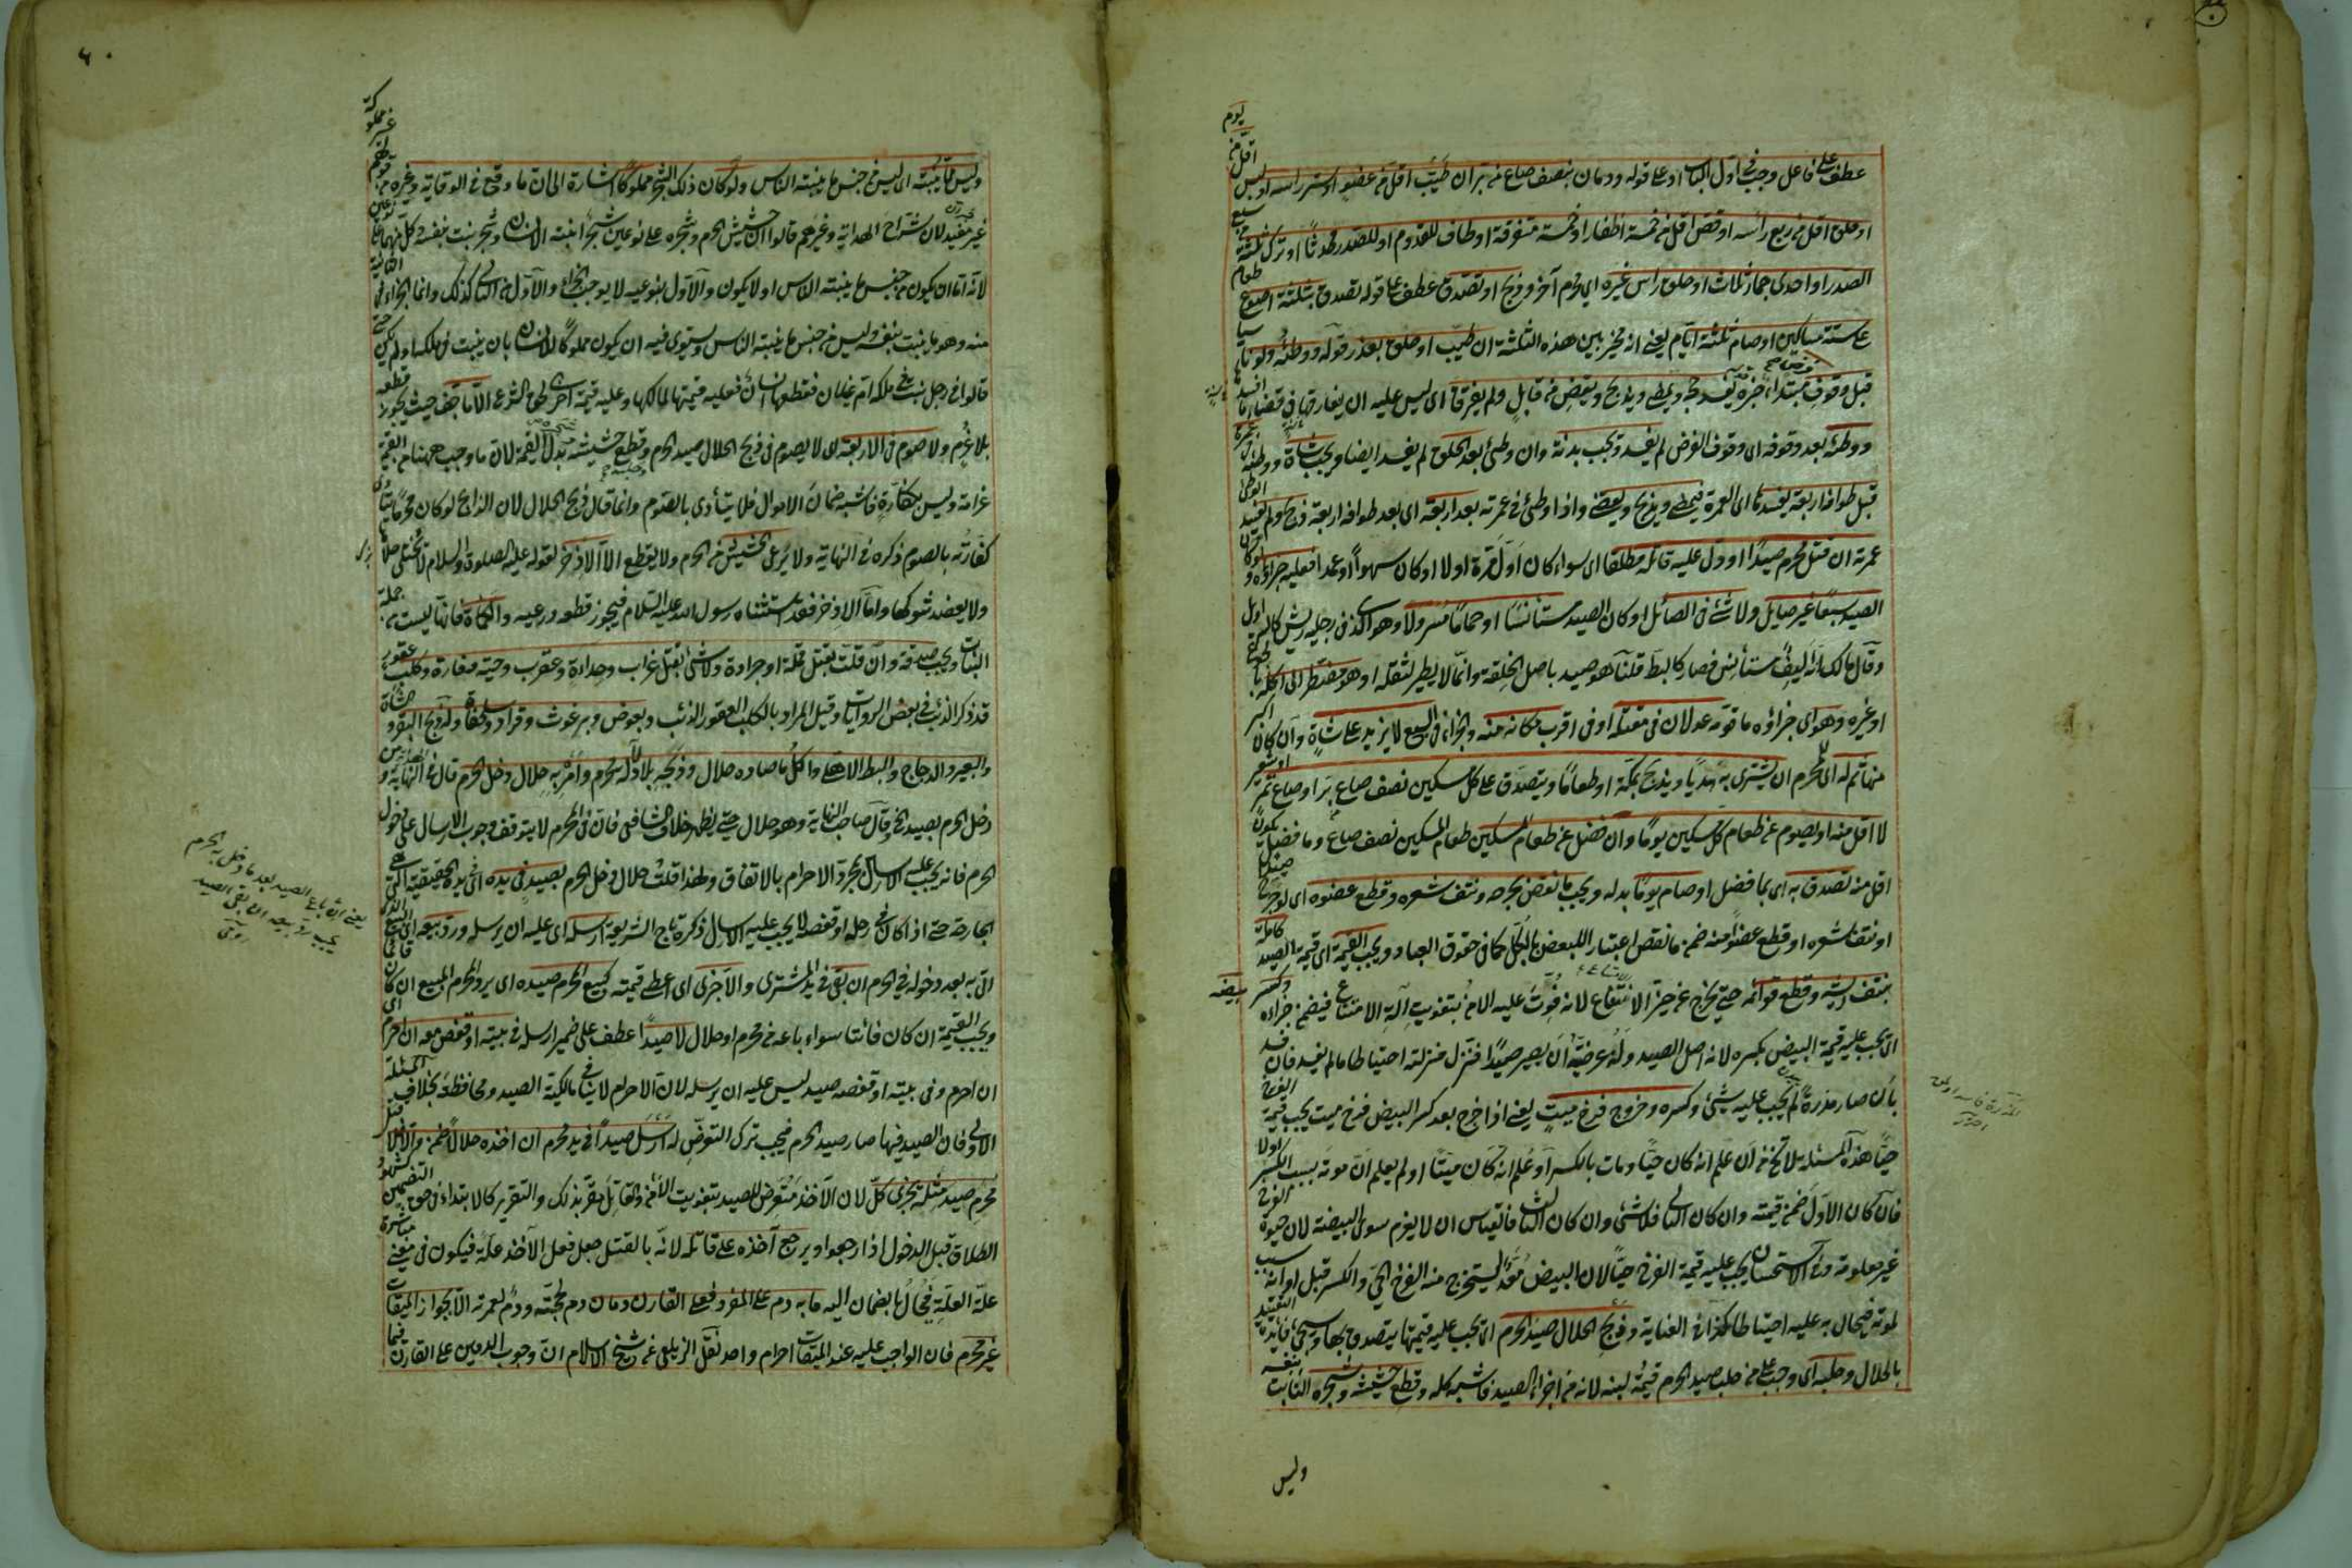 عطف على فاعل وجب في اول الباب او على قوله ودمان بنصف صاع من بر ان طيب اقل من عضو او ستر راسه او لبس اقل من يوم
او حلق اقل من ربع راسه او قص اقل من خمسة اظفار او خمسة متفرقة او طاف للقدوم او للصدر محدثا او ترك ثلثة من سبع
الصدر او احدى جمار ثلاث او حلق راس غيره اي محرم آخر وذبح او تصدق عطف على قوله تصدق بثلثة اصوع طعام
على ستة مساكين او صام ثلثة ايام يعني انه مخير بين هذه الثلثة ان طيب او حلق بعذر قوله ووطئه ولو ناسيا
قبل وقوف فرض يفسد حجه ويمضي ويذبح ويقضي من قابل ولم يفرقا اى ليس عليه ان يفارقها في قضاء ما افسده
ووطئه بعد وقوفه اى وقوف الفرض لم يفسد وتجب بدنة وان وطئ بعد الحلق لم يفسد ايضا ويجب شاة ووطئه في عمرته
قبل طوافه اربعة يفسدها اى العمرة فيمضي ويذبح ويقضي واذا وطئ في عمرته بعد اربعة اى بعد طوافه اربعة ذبح ولم يفسد الوطئ
عمرته ان قتل محرم صيدا او دل عليه قاتله مطلقا اى سواء كان اول مرة او لا او كان سهوا او عمدا فعليه جزاؤه ولو كان
الصيد سبعا غير صايل ولا شئ في الصائل او كان الصيد مستأنسا او حماما مسرولا وهو الذى في رجليه ريش كالسراويل
وقال مالك انه ليف مستأنس فصار كالبط قلنا هو صيد باصل الخلقة وانما لا يطير لثقله او هو مضطر الى اكله
او غيره وهو اى جزاؤه ما قومه عدلان في مقتله او في اقرب مكانه منه والجزاء في السبع لا يزيد على شاة وان كان اكبر
منها ثم له اى للمحرم ان يشترى به هديا ويذبح بمكة او طعاما ويتصدق على كل مسكين نصف صاع بر او صاع تمر او شعير
لا اقل منه او يصوم عن طعام كل مسكين يوما وان فضل عن طعام مسكين طعام المسكين نصف صاع وما فضل يكون
اقل منه تصدق به اى بما فضل او صام يوما بدله ويجب ما نقص بجرحه ونتف شعره وقطع عضوه اى لو جرح صيدا
او نتف شعره او قطع عضوا منه ضمن ما نقص اعتبارا للبعض بالكل كما في حقوق العباد ويجب القيمة اى قيمة الصيد كاملة
بنتف ريشه وقطع قوائمه حتى يخرج عن حيز الامتناع لانه فوت عليه الامن بتفويت آلة الامتناع فيضمن جزاءه وكسر بيضه
اى يجب عليه قيمة البيض بكسره لانه اصل الصيد وله عرضية ان يصير صيدا فنزل منزلته احتياطا ما لم يفسد فان فسد
بان صار مذرة لم يجب عليه شئ وكسره وخروج فرخ ميت يعنى اذا خرج بعد كسر البيض فرخ ميت يجب قيمة الفرخ
حيا هذه المسئلة لا تخ من ان علم انه كان حيا ومات بالكسر او علم انه كان ميتا او لم يعلم ان موته بسبب الكسر او لا
فان كان الاول ضمن قيمته وان كان الثانى فلا شئ وان كان الثالث فالقياس ان لا يغرم سوى البيضة لان حيوة الفرخ
غير معلومة وفى الاستحسان يجب عليه قيمة الفرخ حيا لان البيض معد ليستخرج منه الفرخ الحى والكسر قبل اوانه سبب
لموته فيحال به عليه احتياطا كذا في العناية وذبح الحلال صيد الحرم اى تجب عليه قيمتها يتصدق بها وسيجئ فائدة التقييد
بالحلال وحلبه اى وجب على من حلب صيد الحرم قيمة لبنه لانه من اجزاء الصيد فاشبه كله وقطع حشيشه وشجره النابت بنفسه
وليس
وليس مما ينبته اى ليس من جنس ما ينبته الناس ولو كان ذلك الشجر مملوكا اشارة الى ان ما وقع في الوقاية وغيره من قولهم غير مملوكة
غير مفيد لان شراح الهداية وغيرهم قالوا ان حشيش الحرم وشجره على نوعين شجر انبته الانسان وشجر نبت بنفسه وكل منهما على نوعين
لانه اما ان يكون من جنس ما ينبته الناس او لا يكون والاول بنوعيه لا يوجب الجزاء والاول من الثانى كذلك وانما الجزاء في الثانى
منه وهو ما ينبت بنفسه وليس من جنس ما ينبته الناس ويستوى فيه ان يكون مملوكا للانسان بان ينبت في ملكه او لم يكن حتى
قالوا في رجل نبت في ملكه ام غيلان فقطعها انسان فعليه قيمتها لمالكها وعليه قيمة اخرى لحق الشرع الا ما جف حيث يجوز قطعه
بلا غرم ولا صوم في الاربعة اى لا يصوم في ذبح الحلال صيد الحرم وقطع حشيشه بدل القيمة لان ما وجب ههنا من القيمة
غرامة وليس بكفارة فاشبه ضمان الاموال فلا يتأدى بالصوم وانما قال ذبح الحلال لان الذابح لو كان محرما يتأدى
كفارته بالصوم ذكره في النهاية ولا يرعى الحشيش من الحرم ولا يقطع الا الاذخر لقوله عليه الصلوة والسلام لا يختلى خلاها
ولا يعضد شوكها واما الاذخر فقد استثناه رسول الله عليه السلام فيجوز قطعه ورعيه والكمأة فانها ليست من جملة
النبات ويجب صدقة وان قلت بقتل قملة او جرادة ولا شئ بقتل غراب وحدأة وعقرب وحية وفارة وكلب عقور
قد ذكر الذئب في بعض الروايات وقيل المراد بالكلب العقور الذئب وبعوض وبرغوث وقراد وسلحفاة وله ذبح البقر والشاة
والبعير والدجاج والبط الاهلى واكل ما صاده حلال وذبحه بلا دلالة محرم وامره به حلال دخل الحرم قال في الهداية ومن
دخل الحرم بصيد الخ وقال صاحب النهاية وهو حلال حتى يظهر خلاف الشافعى فان في المحرم لا يتوقف وجوب الارسال على دخول
الحرم فانه يجب عليه الارسال بمجرد الاحرام بالاتفاق ولهذا قلت حلال دخل الحرم بصيد في يده اى يده الحقيقية التى هى
الجارحة حتى اذا كان في رحله او قفصه لا يجب عليه الارسال ذكره تاج الشريعة ارسله اى عليه ان يرسله ورد بيعه اى البيع الذى
اتى به بعد دخوله في الحرم ان بقى في يد المشترى والا جزى اى اعطى قيمته كبيع المحرم صيده اى يرد المحرم المبيع ان كان قائما
ويجب القيمة ان كان فائتا سواء باعه من محرم او حلال لا صيدا عطف على ضمير ارسله في بيته او قفص معه ان احرم اى
ان احرم وفى بيته او قفصه صيد ليس عليه ان يرسله لان الاحرام لا ينافى مالكية الصيد ومحافظته بخلاف المسئلة
الاولى فان الصيد فيها صار صيد الحرم فيجب ترك التعرض له ارسل صيدا في يد محرم ان اخذه حلالا ضمن والا لا قتل
محرم صيد مثله يجزى كل لان الآخذ متعرض للصيد بتفويت الأمن والقاتل مقرر بذلك والتقرير كالابتداء في حق التضمين كشهود
الطلاق قبل الدخول اذا رجعوا ويرجع آخذه على قاتله لانه بالقتل جعل فعل الآخذ علة فيكون في معنى مباشرة
علة العلة فيحال بالضمان اليه ما به دم على المفرد فعلى القارن دمان دم لحجته ودم لعمرته الا بجواز الميقات
غير محرم فان الواجب عليه عند الميقات احرام واحد نقل الزيلعى عن شيخ الاسلام ان وجوب الدمين على القارن فيما
يعنى ان باع الصيد بعد ما دخل به الحرم
يجب رد بيعه ان بقى الصيد